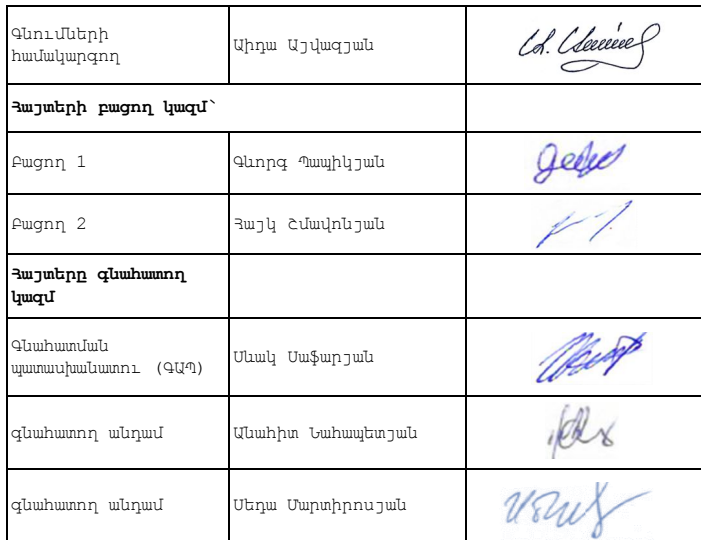 Գնումների
համակարգող
Աիդա Այվազյան
Հայտերի բացող կազմ՝
Բացող 1
Գևորգ Պապիկյան
Բացող 2
Հայկ Շմավոնյան
Հայտերը գնահատող
կազմ
Գնահատման
պատասխանատու (ԳԱՊ)
Սևակ Սաֆարյան
գնահատող անդամ
Անահիտ Նահապետյան
գնահատող անդամ
Սեդա Մարտիրոսյան